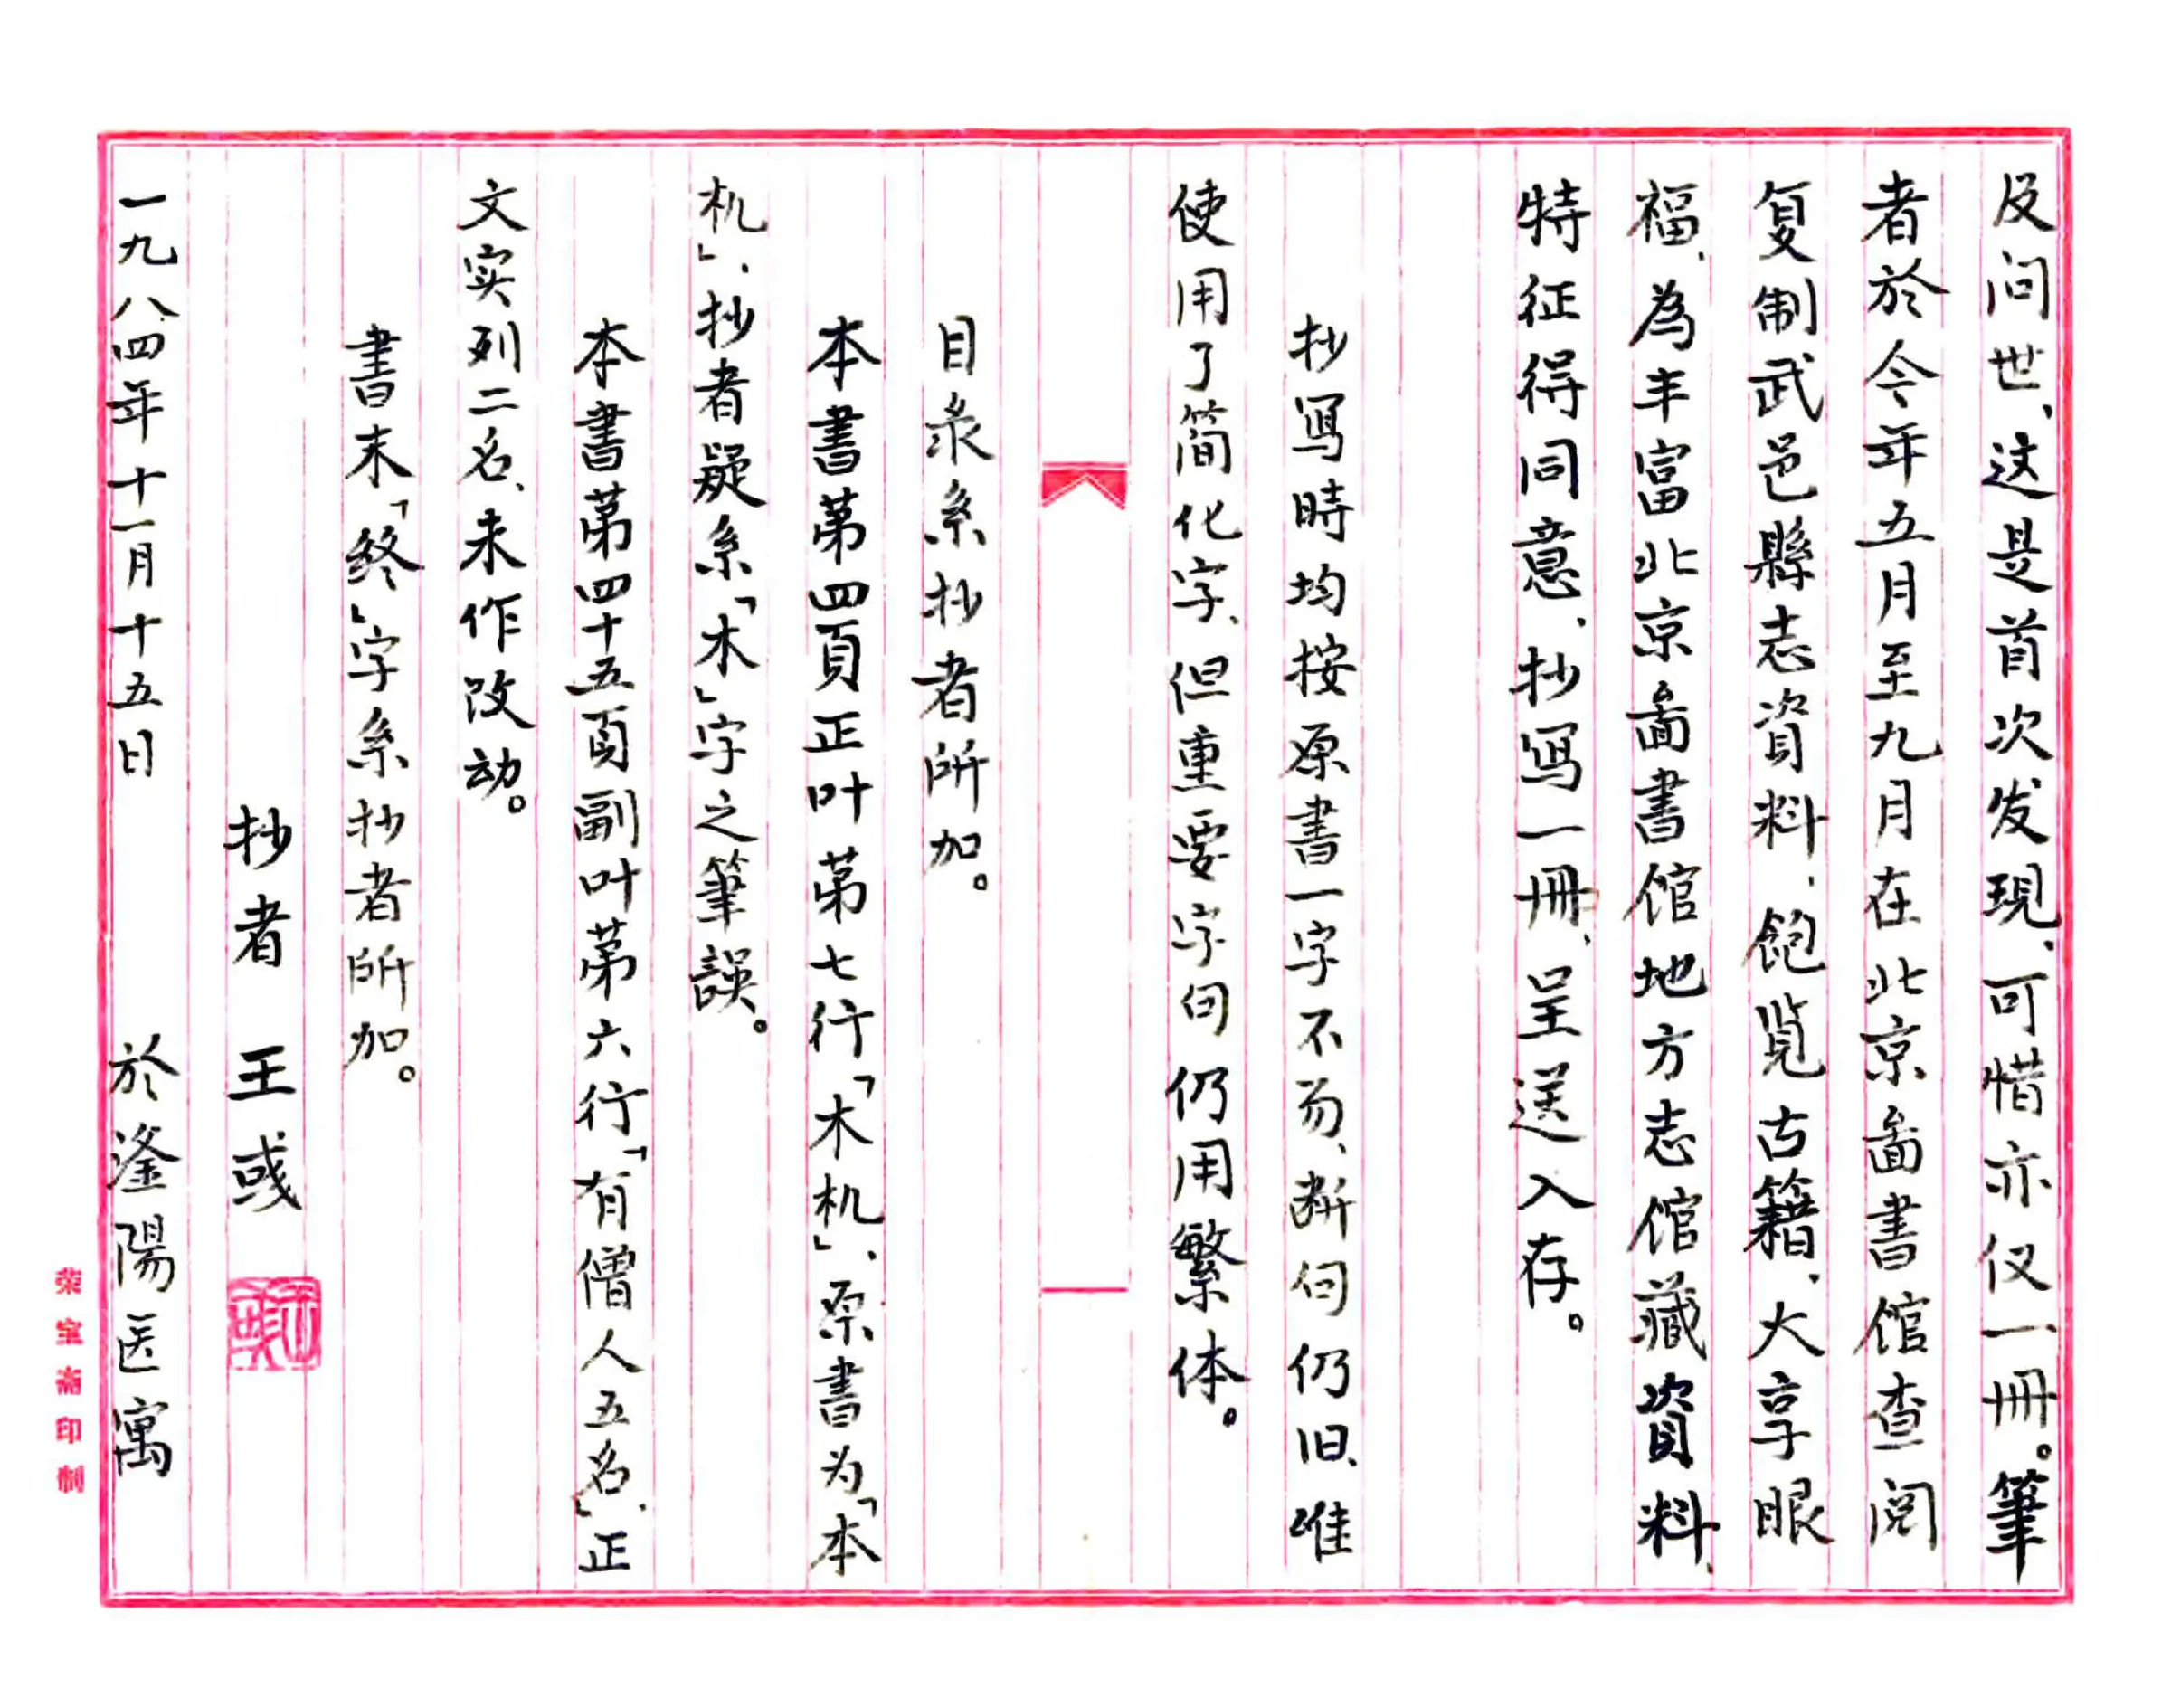 及问世、这是首次发現、可惜亦仅一冊。筆
者於今年五月至九月在北京啚書馆查阅
复制武邑縣志資料、飽览古籍、大享眼
福、為丰富北京啚書馆地方志馆藏資料、
特征得同意、抄写一冊、呈送入存。
抄寫時均按原書一字不易、断句仍旧、唯
使用了简化字、但重要字句仍用繁体。
目录系抄者所加。
本書第四頁正叶第七行「木机」、原書为「本
机」、抄者疑系「木」字之筆誤。
本書第四十五頁副叶第六行「有僧人五名」、正
文实列二名、未作改动。
書末「終」字系抄者所加。
抄者 王彧
一九八四年十一月十五日 於滏陽医寓
荣宝斋印制